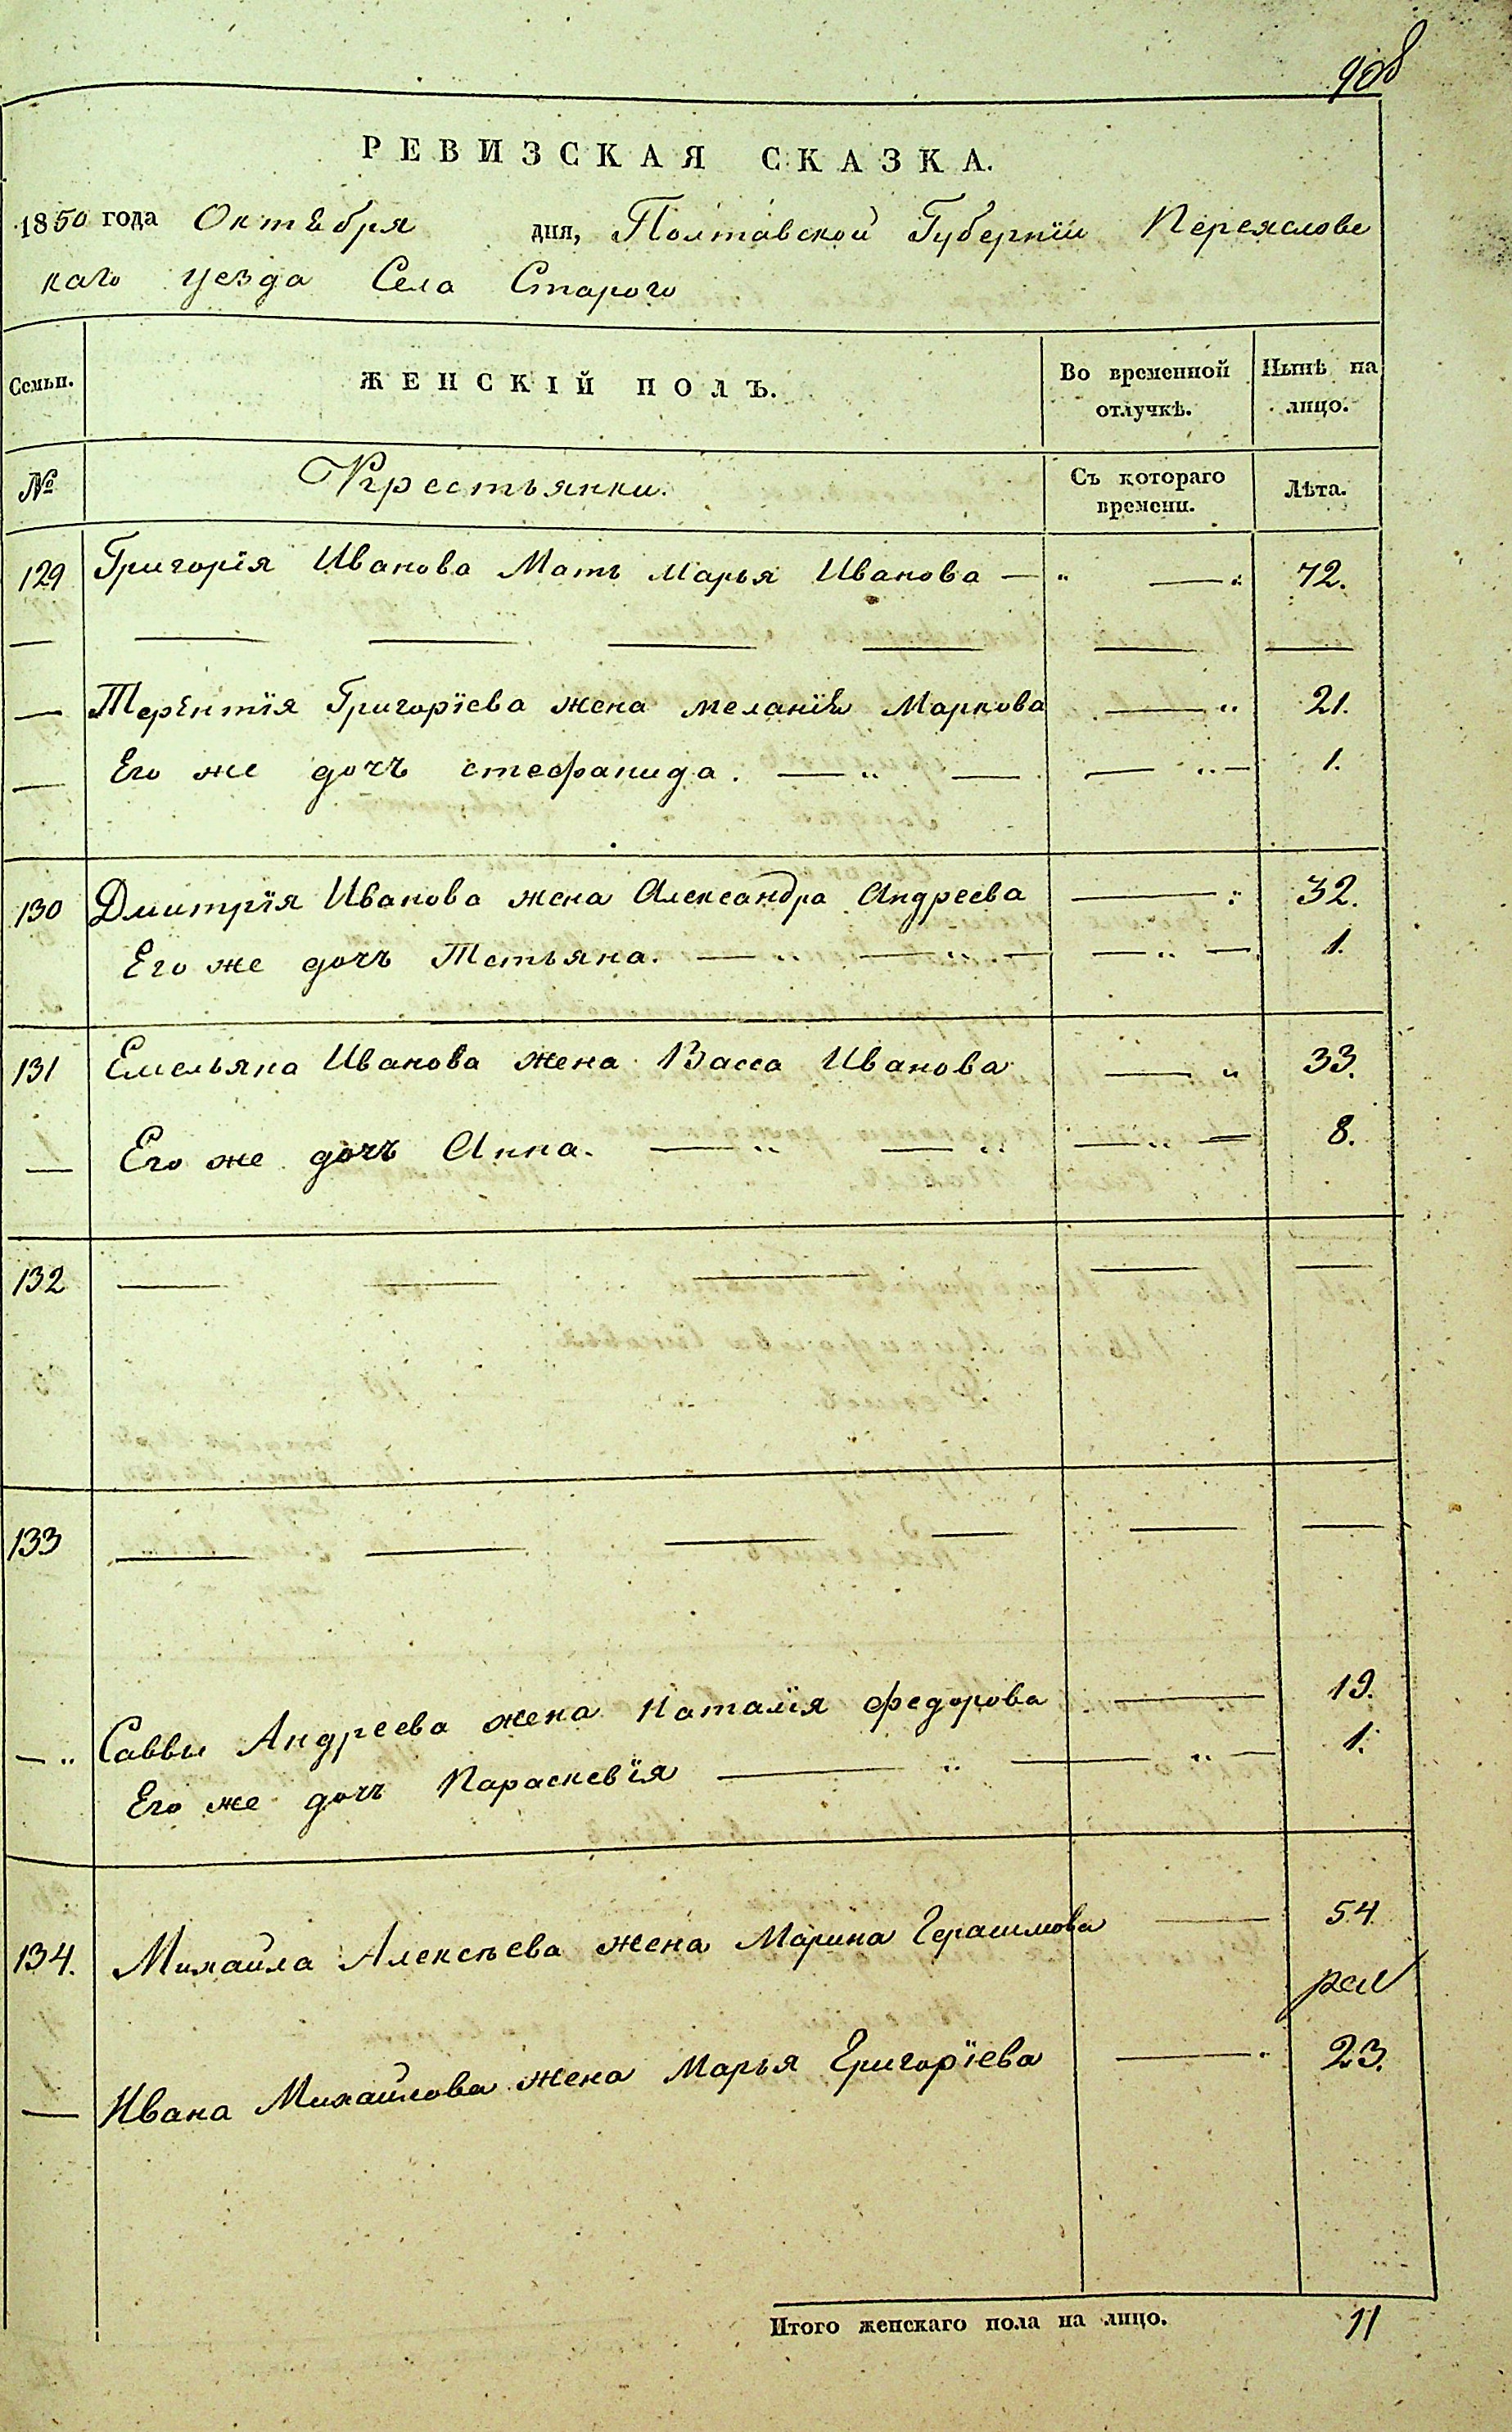 908
РЕВИЗСКАЯ СКАЗКА.
1850 года Октября дня, Полтавской Губернїи Переяслове
каго уезда Села Старого
Семьи. ЖЕНСКІЙ ПОЛЪ. Во временной отлучкѣ. Нынѣ на лицо.
№ Крестьянки. Съ котораго времени. Лѣта.
129 Григорїя Иванова Мать Марья Иванова — " — " 72.
— — — — — — —
— Терентїя Григорїева жена меланїя Маркова — " 21.
— Его же дочъ стефанида. — " — — " — 1.
130 Дмитрїя Иванова жена Александра Андреева — " 32.
Его же дочъ Тетьяна. — " — " — — " — 1.
131 Емельяна Иванова жена Васса Иванова — " 33.
— Его же дочъ Анна. — " — " — " — 8.
132 — — — — —
133 — — — — — —
— " Саввы Андреева жена Наталїя федорова — 19.
Его же дочъ Параскевїя — " — " — 1.
134. Михайла Алексѣева жена Марина Герасимова — 54
— Ивана Михайлова жена Марья Григорїева — " 23.
Итого женскаго пола на лицо. 11